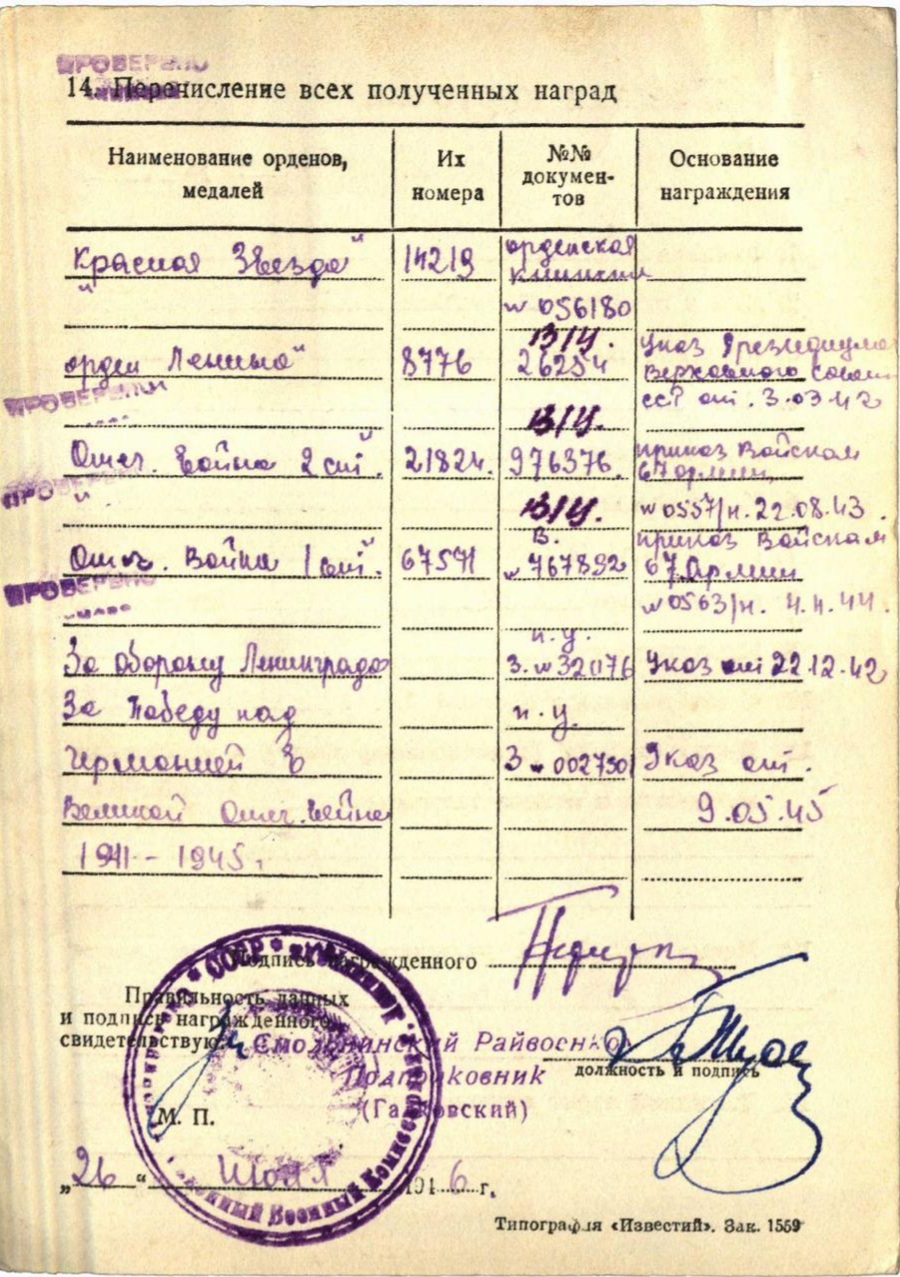 ПРОВЕРЕНО
14. Перечисление всех полученных наград
Наименование орденов, медалей
Их номера
№№ документов
Основание награждения
"Красная Звезда"
14219
орденская
книжка
№ 056180
орден Ленина"
8776
В/У.
26254
Указ Президиума
Верховного Совета
ССР от 3.03.42
ПРОВЕРЕНО
"Отеч. Война 2 ст".
21824.
В/У.
976376.
приказ Войскам
67 армии
№ 0557/н. 22.08.43.
ПРОВЕРЕНО
Отеч. Война 1 ст".
67571
В/У.
В.
№ 767892
приказ Войскам
67 Армии
№ 0563/н. 4.4.44.
ПРОВЕРЕНО
За оборону Ленинграда
н.у.
З. № 32076
Указ от 22.12.42
За Победу над
Германией в
Великой Отеч. войне
1941 - 1945г.
н.у.
З № 0027501
Указ от.
9.05.45
Подпись награжденного
Правильность данных
и подпись награжденного
свидетельствую:
Смольнинский Райвоенком
Подполковник
должность и подпись
М. П.
СССР
Районный Военный Комиссариат
„26" июля 1946 г.
Типография «Известий». Зак. 1559